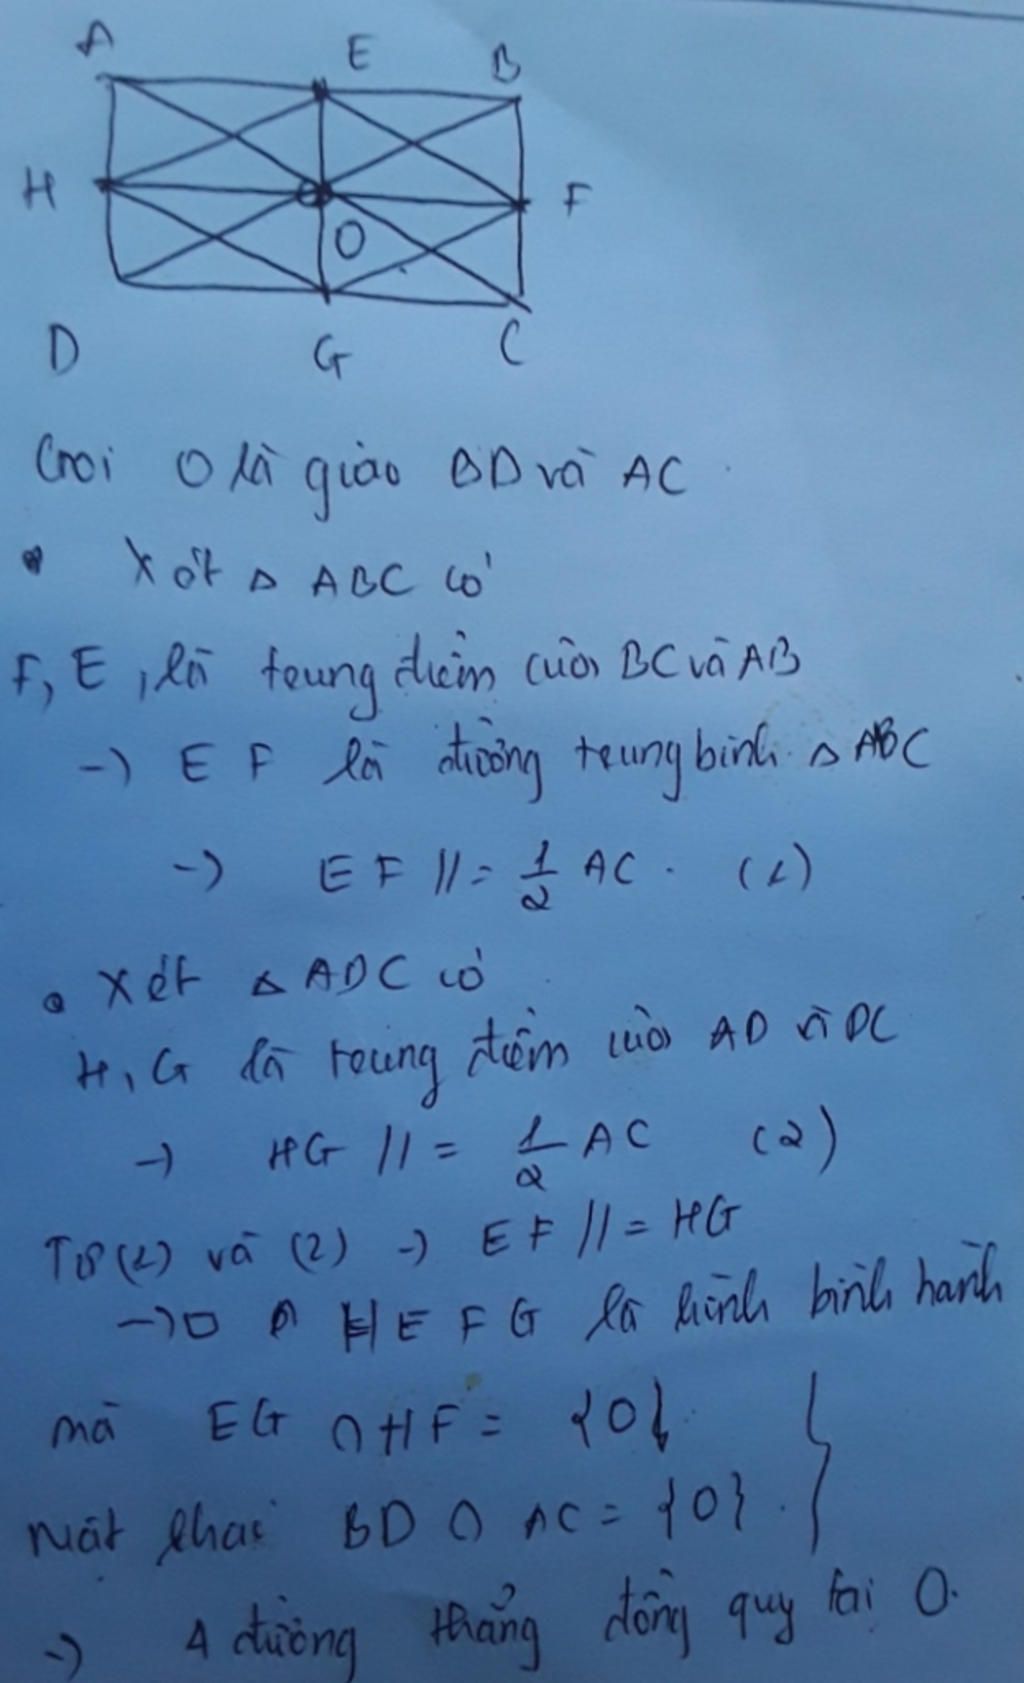 A E B
H F
O
D G C
Gọi O là giao BD và AC.
• Xét Δ ABC có
F, E, là trung điểm của BC và AB
→ EF là đường trung bình Δ ABC
→ EF //= 1/2 AC. (1)
• Xét Δ ADC có
H, G là trung điểm của AD và DC
→ HG //= 1/2 AC (2)
Từ (1) và (2) → EF //= HG
→ □ HEFG là hình bình hành
mà EG ∩ HF = {O}
Mặt khác BD ∩ AC = {O}.
→ 4 đường thẳng đồng quy tại O.